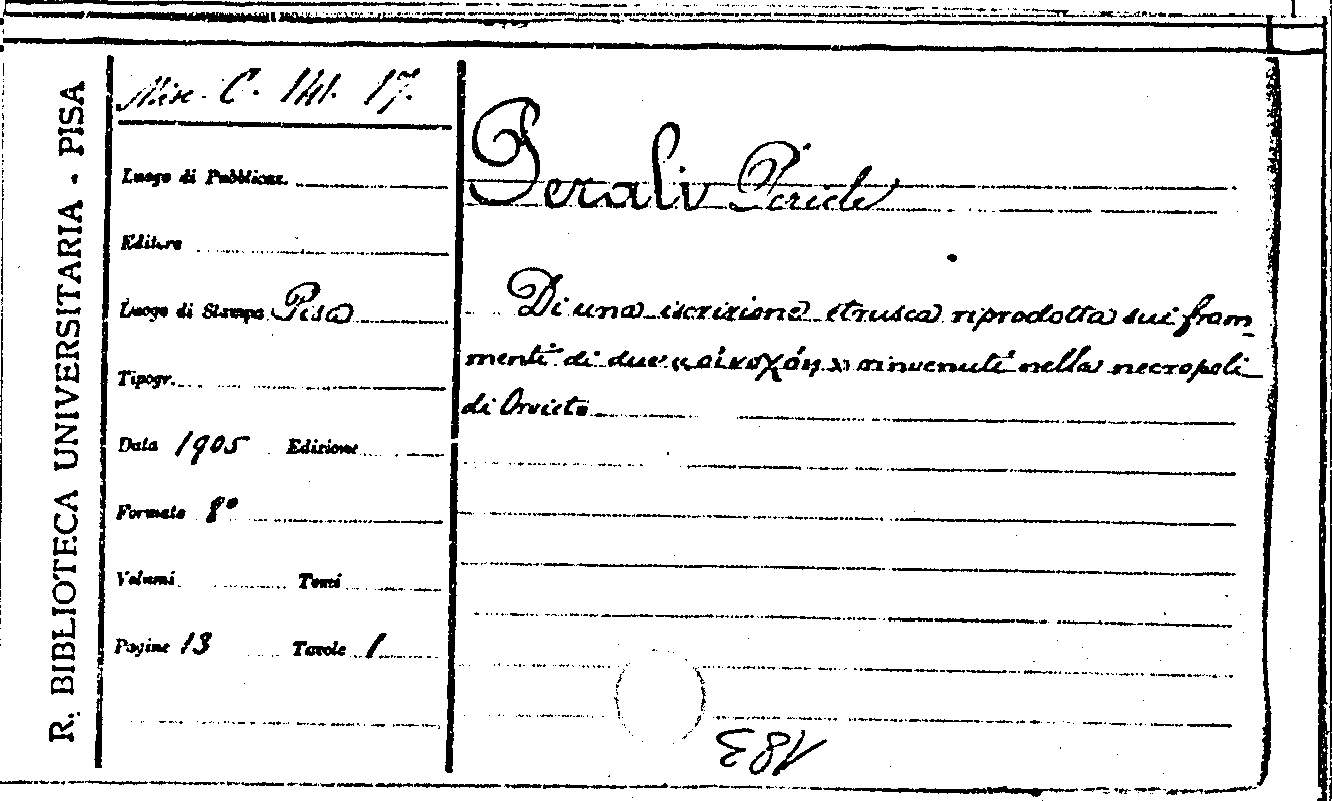 R. BIBLIOTECA UNIVERSITARIA - PISA
Misc. C. 141. 17.
Luogo di Pubblicaz.
Editore
Luogo di Stampa Pisa
Tipogr.
Data 1905 Edizione
Formato 8°
Volumi Tomi
Pagine 13 Tavole 1
Perali Pericle
Di una iscrizione etrusca riprodotta sui fram
menti di due «οἰνοχόη» rinvenuti nella necropoli
di Orvieto
183